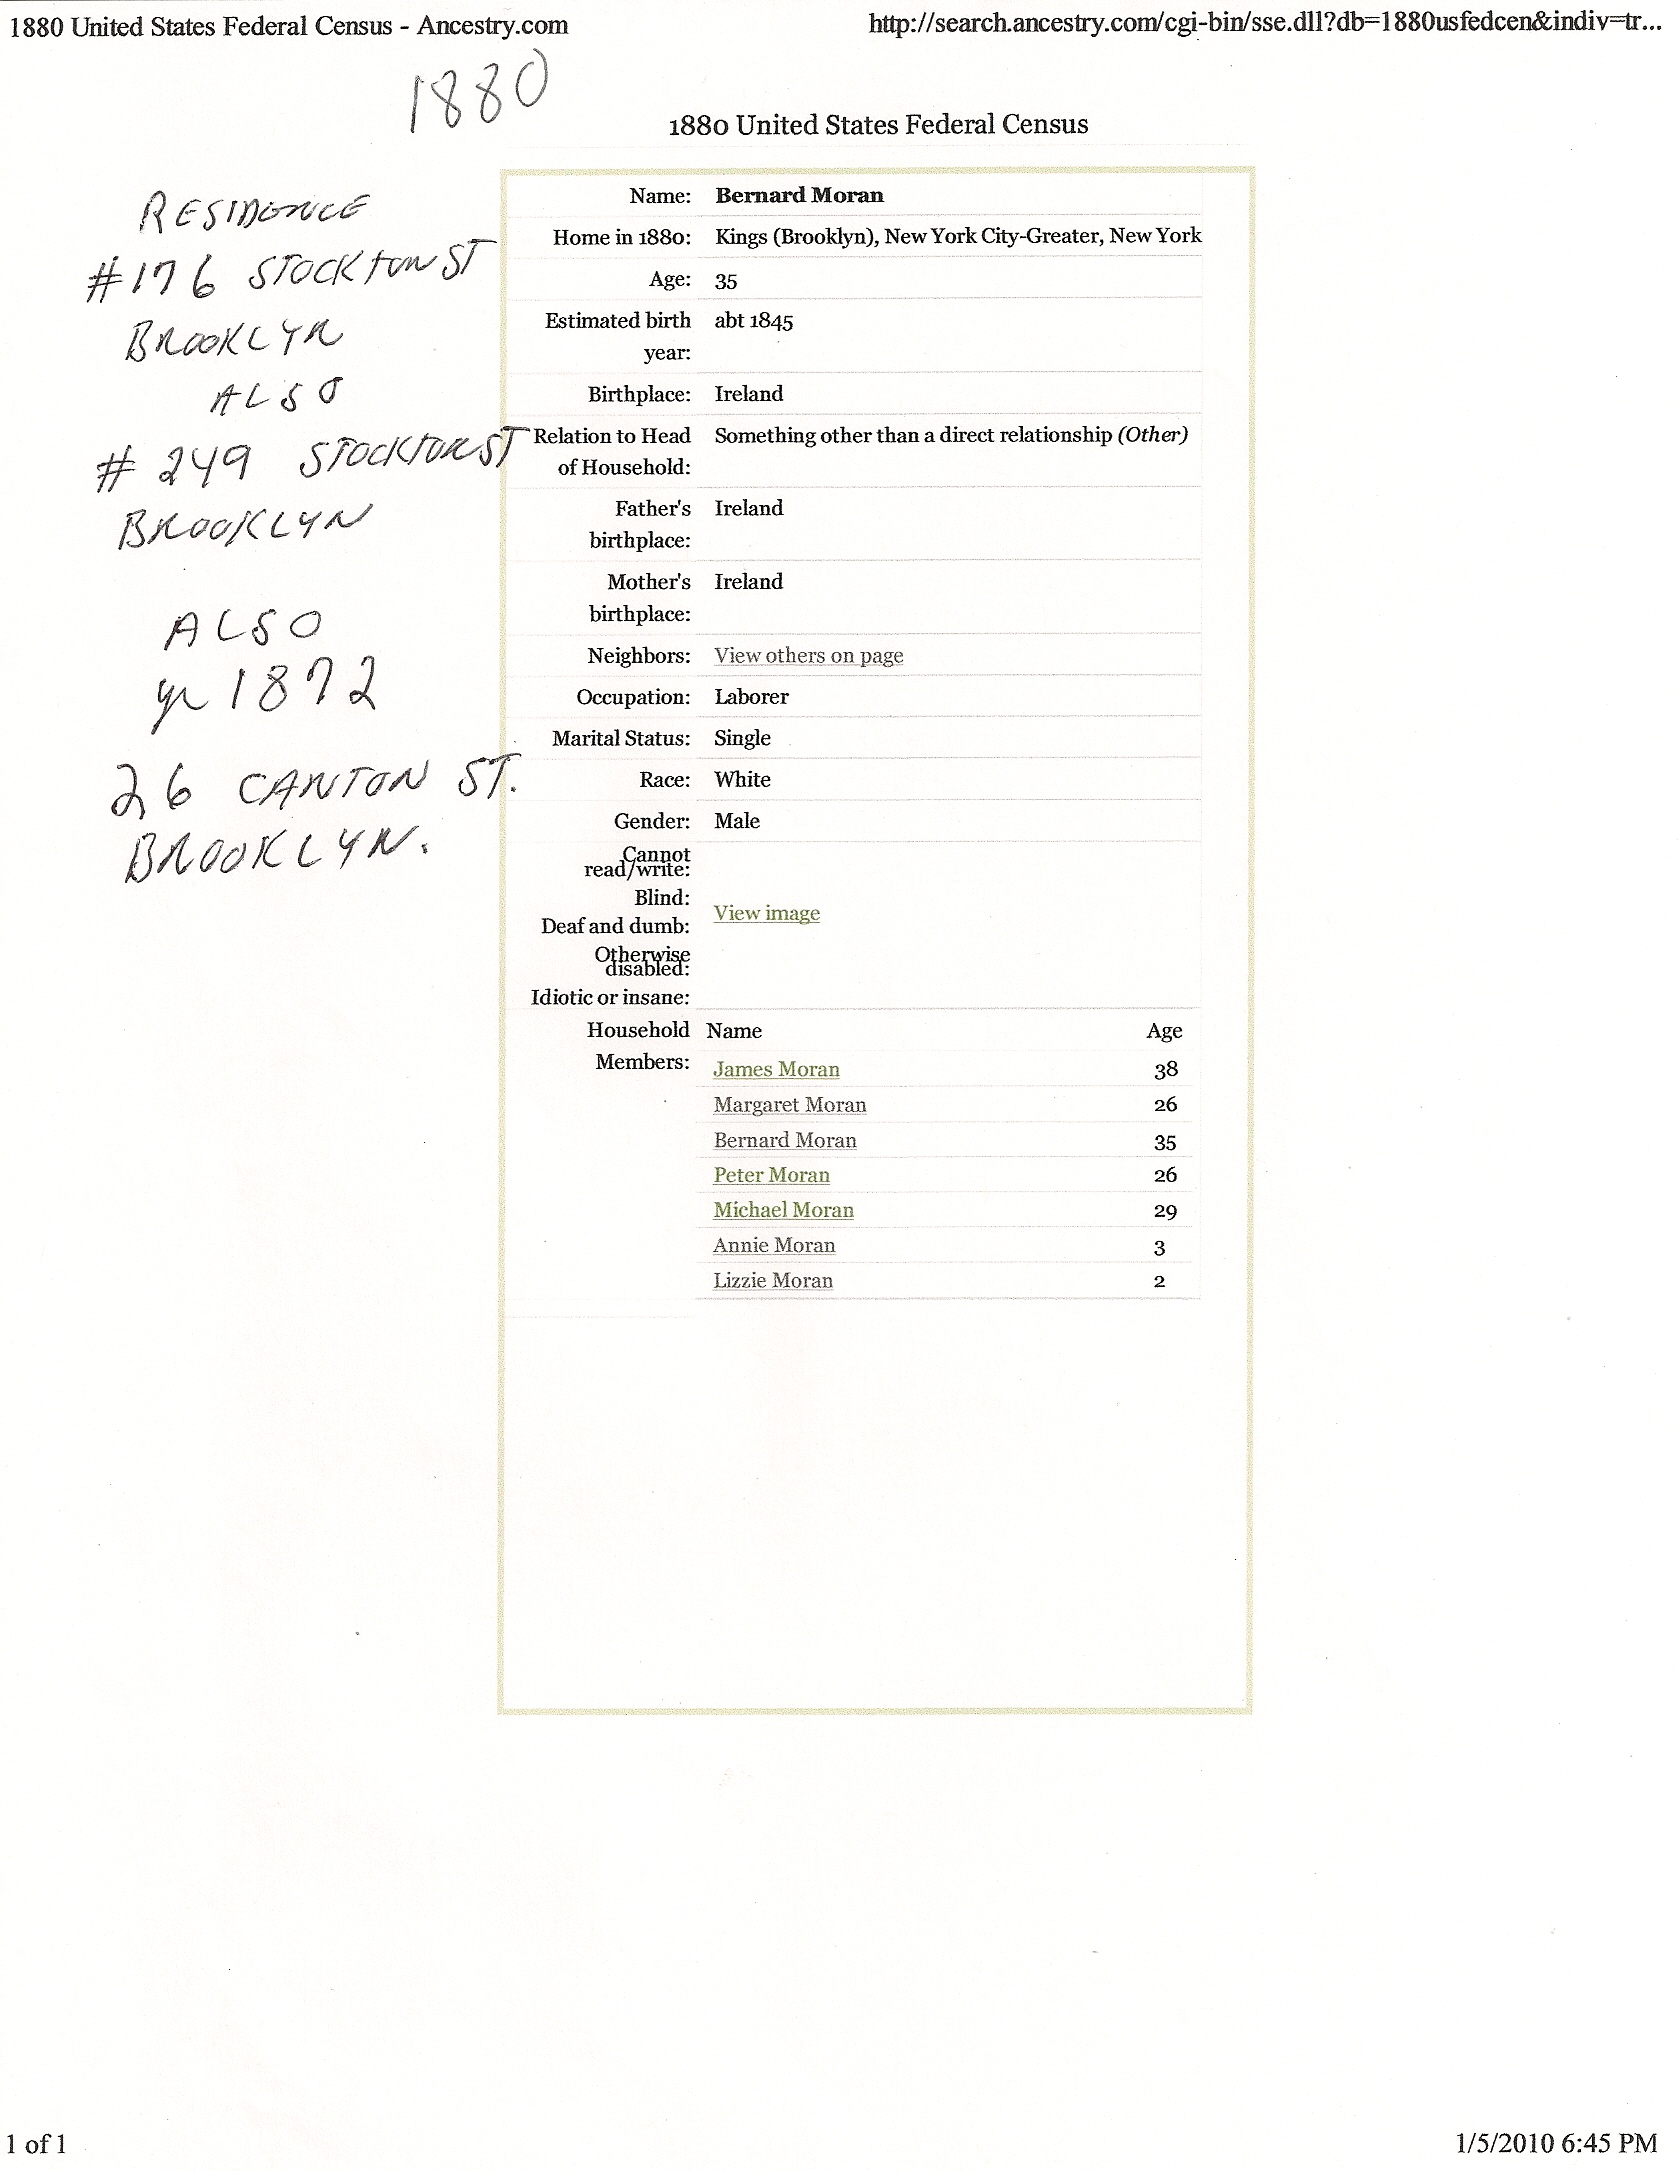 1880 United States Federal Census - Ancestry.com
http://search.ancestry.com/cgi-bin/sse.dll?db=1880usfedcen&indiv=tr...
1880
1880 United States Federal Census
RESIDENCE
#176 STOCKTON ST
BROOKLYN
ALSO
# 249 STOCKTON ST
BROOKLYN
ALSO
yr 1872
26 CANTON ST.
BROOKLYN.
Name: Bernard Moran
Home in 1880: Kings (Brooklyn), New York City-Greater, New York
Age: 35
Estimated birth year: abt 1845
Birthplace: Ireland
Relation to Head of Household: Something other than a direct relationship (Other)
Father's birthplace: Ireland
Mother's birthplace: Ireland
Neighbors: View others on page
Occupation: Laborer
Marital Status: Single
Race: White
Gender: Male
Cannot read/write:
Blind:
Deaf and dumb: View image
Otherwise disabled:
Idiotic or insane:
Household Members: Name Age
James Moran 38
Margaret Moran 26
Bernard Moran 35
Peter Moran 26
Michael Moran 29
Annie Moran 3
Lizzie Moran 2
1 of 1
1/5/2010 6:45 PM